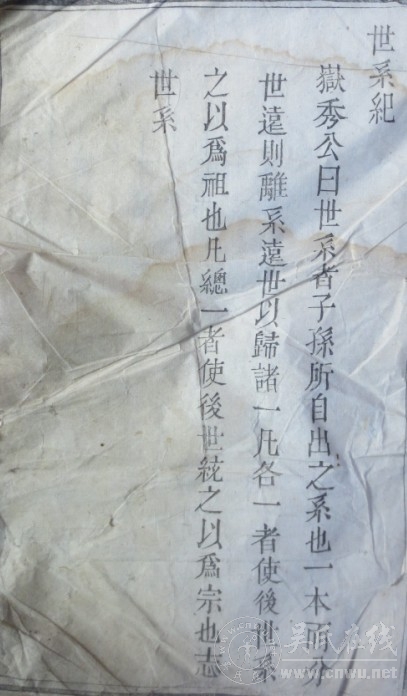 世系紀
獄秀公曰世系者子孫所自出之系也一本而分
世遠則離系遠世以歸諸一凡各一者使後世系
之以爲祖也凡總一者使後世統之以爲宗也志
世系
吴氏在线
www.cnwu.net